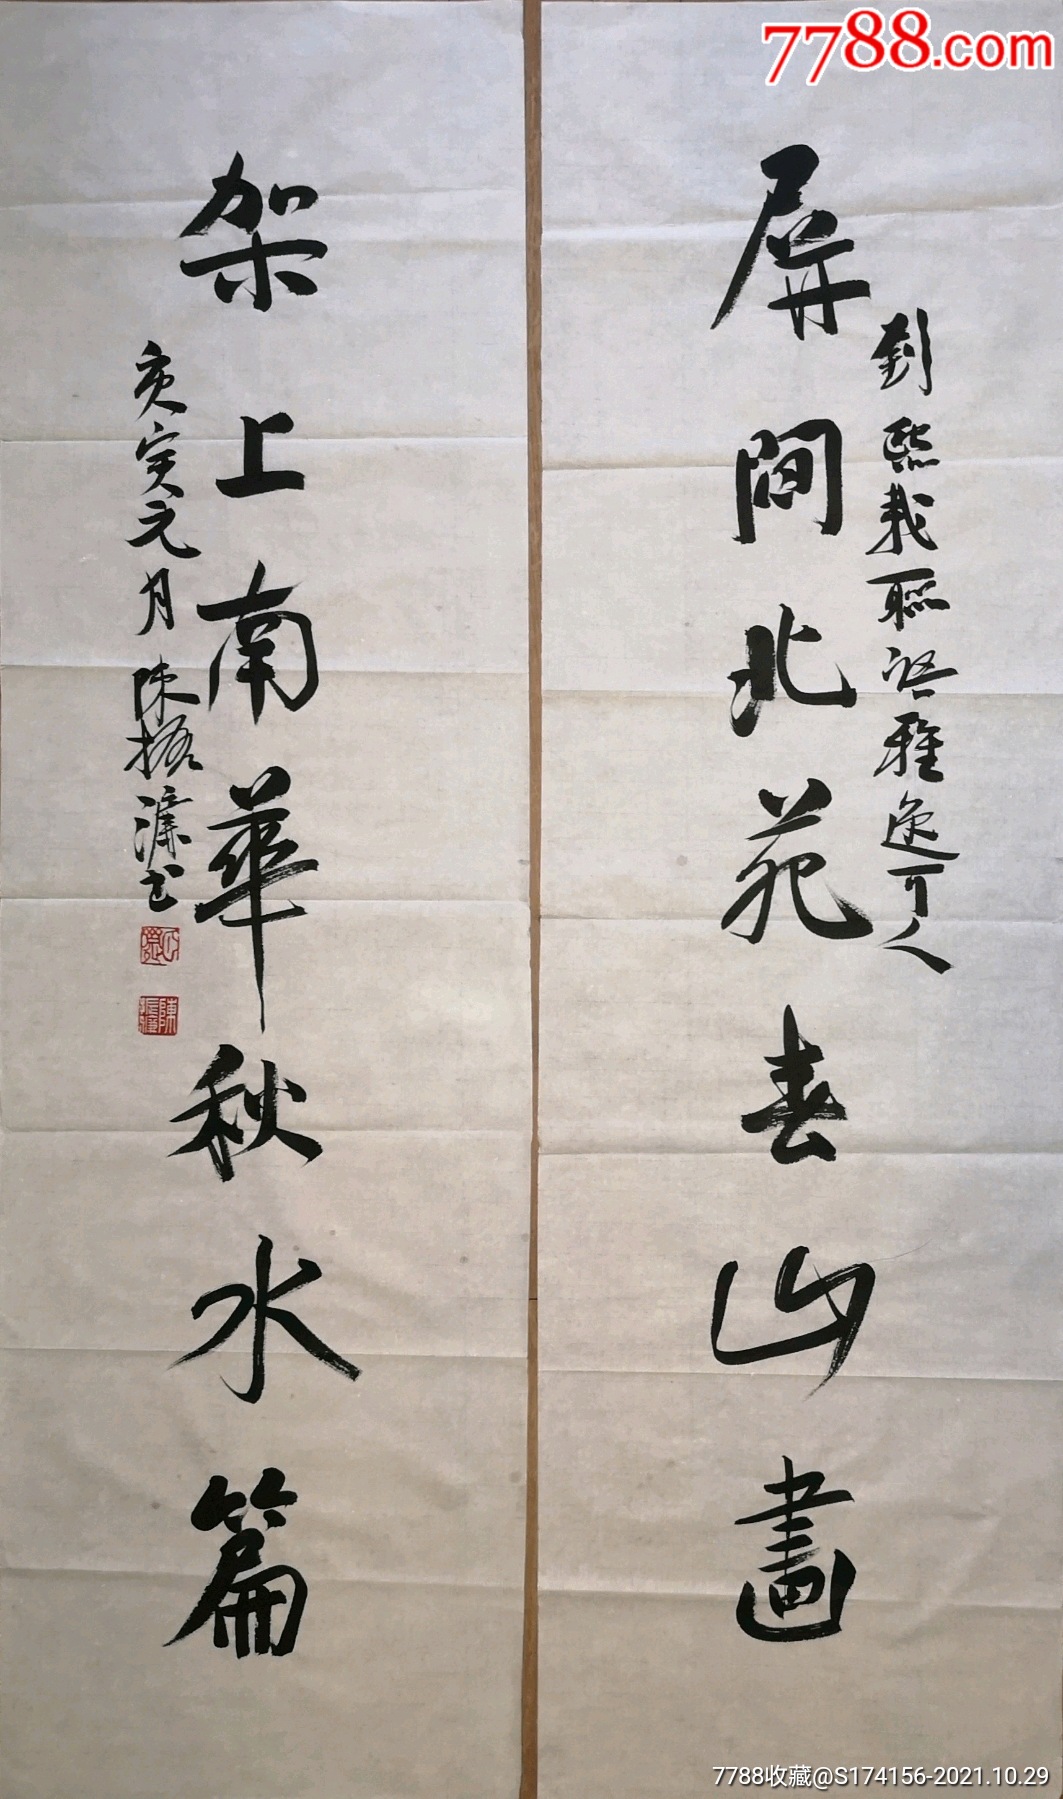 7788.com
屏間北苑春山畫
劉熙載聯語雅逸可人
架上南華秋水篇
庚寅元月陳振濂書
7788收藏@S174156-2021.10.29